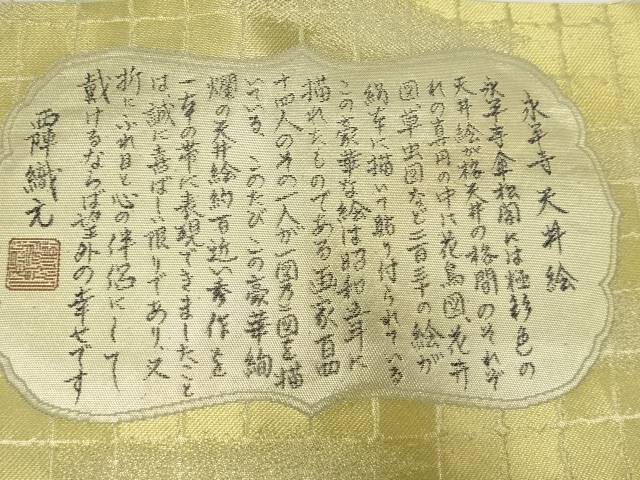 永平寺天井絵
永平寺傘松閣には極彩色の
天井絵が格天井の格間のそれぞ
れの真円の中に花鳥図、花卉
図、草虫図など二百三十の絵が
絹布に描いて貼り付られている
この豪華な絵は昭和五年に
描れたものである画家百四
十四人のその一人が一図乃二図を描
いている、このたびこの豪華絢
爛の天井絵約百近い秀作を
一本の帯に表現できましたこと
は、誠に喜ばしい限りであり、又
折にふれ目と心の伴侶にして
戴けるならば望外の幸せです
西陣織元